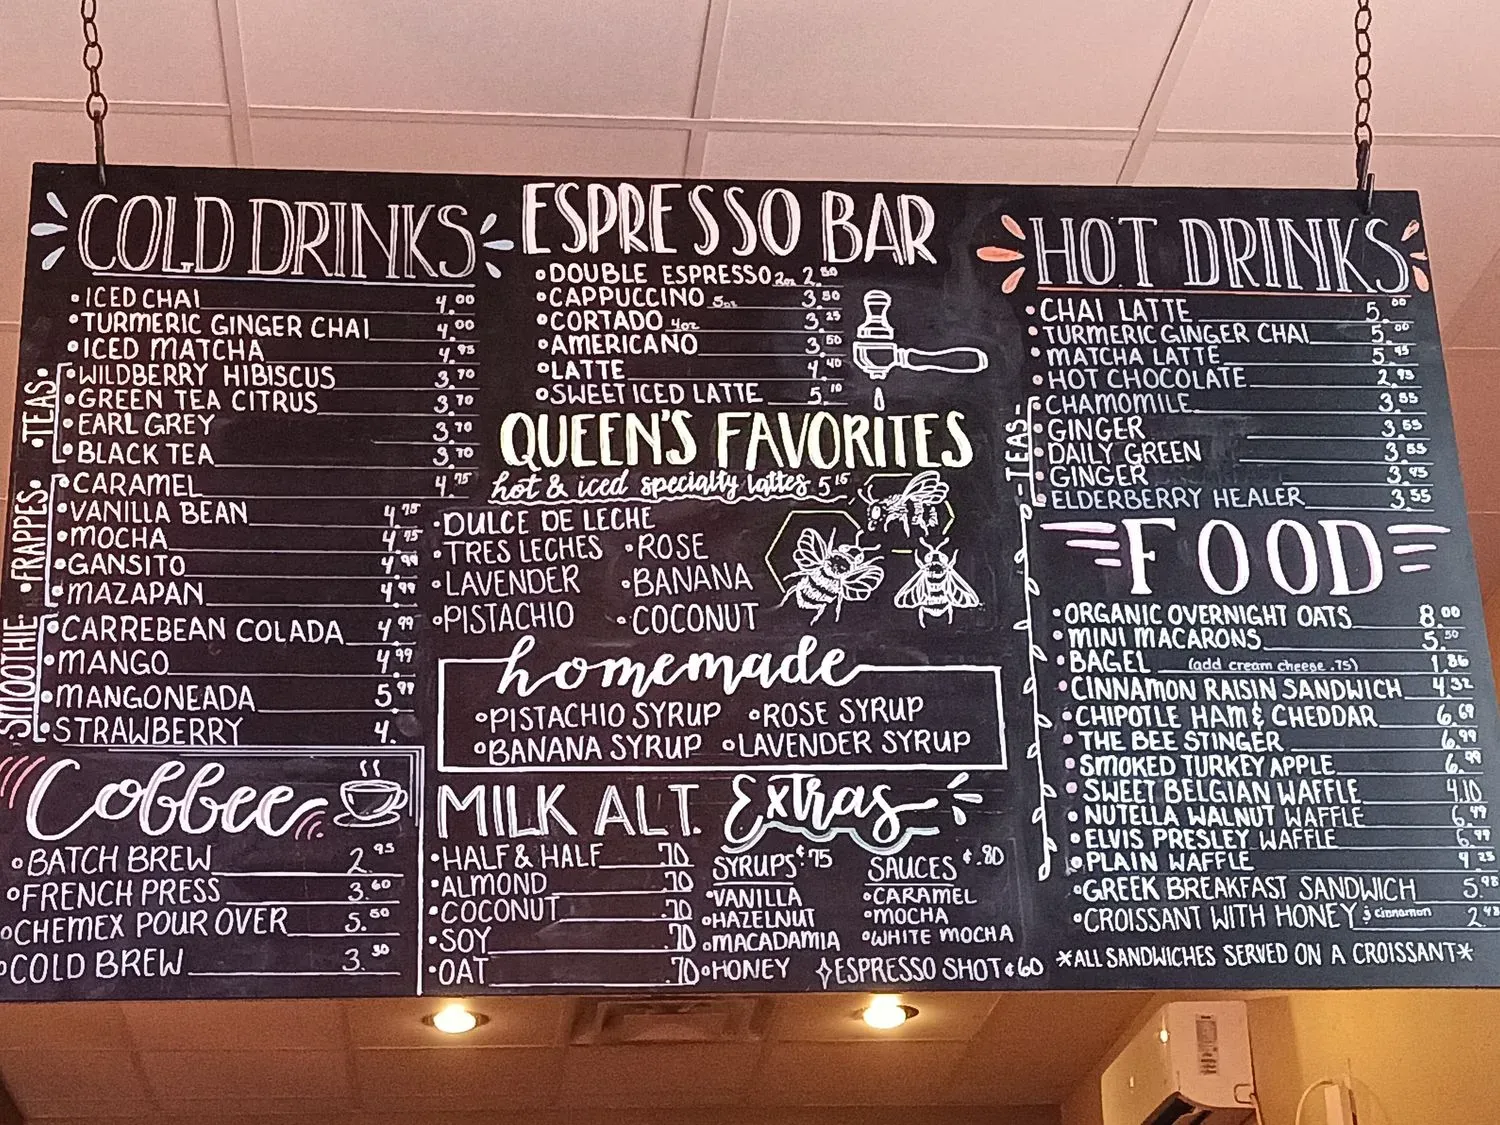 COLD DRINKS
ICED CHAI 4.00
TURMERIC GINGER CHAI 4.00
ICED MATCHA 4.95
TEAS
WILDBERRY HIBISCUS 3.70
GREEN TEA CITRUS 3.70
EARL GREY 3.70
BLACK TEA 3.70
FRAPPES
CARAMEL 4.75
VANILLA BEAN 4.75
MOCHA 4.75
GANSITO 4.99
MAZAPAN 4.99
SMOOTHIE
CARREBEAN COLADA 4.99
MANGO 4.99
MANGONEADA 5.99
STRAWBERRY 4.
Coffee
BATCH BREW 2.95
FRENCH PRESS 3.60
CHEMEX POUR OVER 5.50
COLD BREW 3.30
ESPRESSO BAR
DOUBLE ESPRESSO 2oz 2.50
CAPPUCCINO 5oz 3.50
CORTADO 4oz 3.25
AMERICANO 3.50
LATTE 4.40
SWEET ICED LATTE 5.10
QUEEN'S FAVORITES
hot & iced specialty lattes 5.15
DULCE DE LECHE
TRES LECHES ROSE
LAVENDER BANANA
PISTACHIO COCONUT
homemade
PISTACHIO SYRUP ROSE SYRUP
BANANA SYRUP LAVENDER SYRUP
MILK ALT.
HALF & HALF .70
ALMOND .70
COCONUT .70
SOY .70
OAT .70
Extras
SYRUPS ¢.75
VANILLA
HAZELNUT
MACADAMIA
HONEY
SAUCES ¢.80
CARAMEL
MOCHA
WHITE MOCHA
ESPRESSO SHOT ¢60
HOT DRINKS
CHAI LATTE 5.00
TURMERIC GINGER CHAI 5.00
MATCHA LATTE 5.45
HOT CHOCOLATE 2.95
TEAS
CHAMOMILE 3.55
GINGER 3.55
DAILY GREEN 3.55
GINGER 3.95
ELDERBERRY HEALER 3.55
FOOD
ORGANIC OVERNIGHT OATS 8.00
MINI MACARONS 5.50
BAGEL (add cream cheese .75) 1.86
CINNAMON RAISIN SANDWICH 4.32
CHIPOTLE HAM & CHEDDAR 6.69
THE BEE STINGER 6.99
SMOKED TURKEY APPLE 6.99
SWEET BELGIAN WAFFLE 4.10
NUTELLA WALNUT WAFFLE 6.99
ELVIS PRESLEY WAFFLE 6.99
PLAIN WAFFLE 4.25
GREEK BREAKFAST SANDWICH 5.98
CROISSANT WITH HONEY & cinnamon 2.48
*ALL SANDWICHES SERVED ON A CROISSANT*